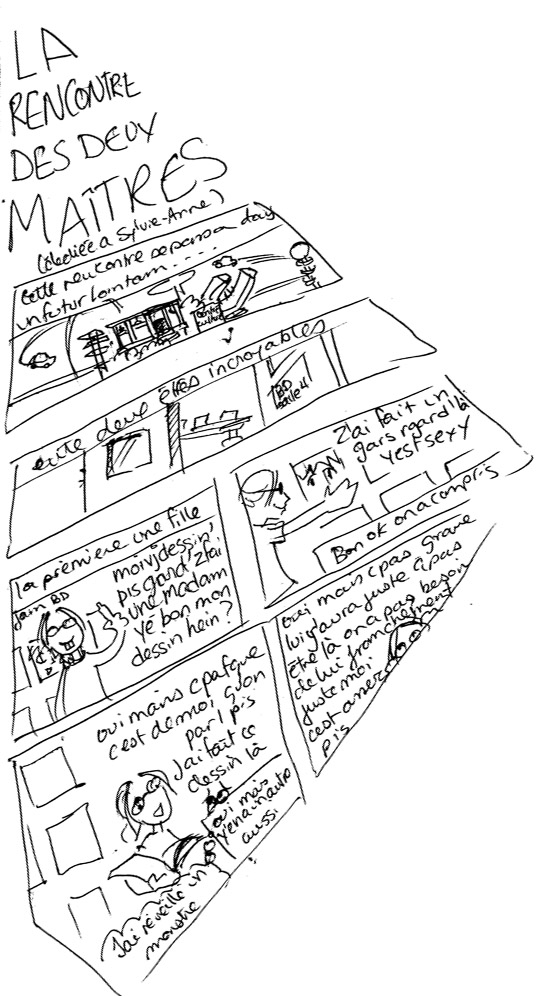 LA
RENCONTRE
DES DEUX
MAÎTRES
(dédiée a Sylvie-Anne)
Cette rencontre se passa dans
un futur lointain....
entre deux êtres incroyables
BD
salle 4
la première une fille
Jam BD
moivjdessin'
pis gand' J'fai
une madam
yé bon mon
dessin hein?
J'ai fait un
gars regard là
yest sexy
Bon ok on a compris
oui mais c pafque
c'est de moi qu'on
parl pis
J'ai fait ce
dessin là
oui mais
y'en a in autre
aussi
J'ai réveillé un
monstre
oui mais c pas grave
lui y'aura juste à pas
être là on a pas besoin
de lui franchement
juste moi
c'est assez
pis